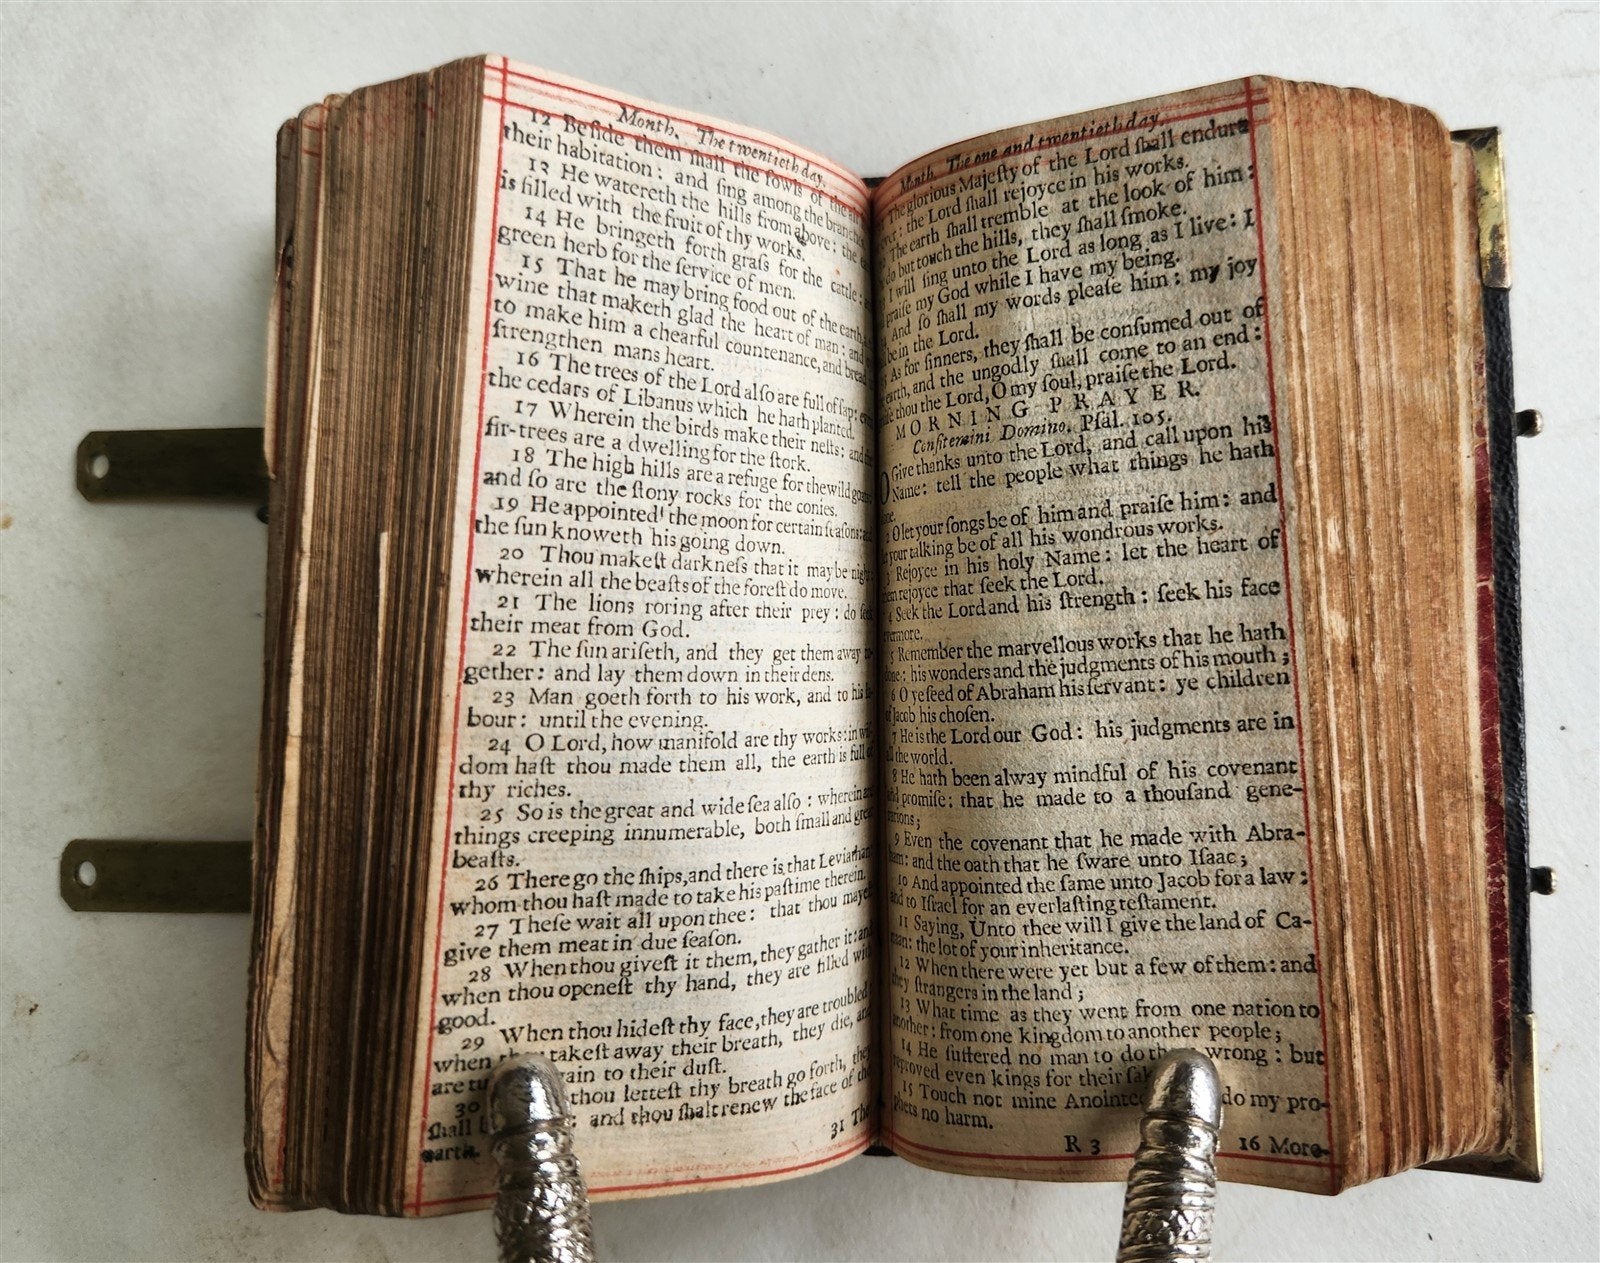 Month. The twentieth day.
12 Beſide them ſhall the fowls of the air
their habitation: and ſing among the branches
13 He watereth the hills from above: the
is filled with the fruit of thy works.
14 He bringeth forth graſs for the cattle:
green herb for the ſervice of men.
15 That he may bring food out of the earth,
wine that maketh glad the heart of man: and
to make him a chearful countenance, and bread
ſtrengthen mans heart.
16 The trees of the Lord alſo are full of ſap:
the cedars of Libanus which he hath planted.
17 Wherein the birds make their neſts: and
fir-trees are a dwelling for the ſtork.
18 The high hills are a refuge for the wild goats
and ſo are the ſtony rocks for the conies.
19 He appointed the moon for certain ſeaſons:
the ſun knoweth his going down.
20 Thou makeſt darkneſs that it may be night
wherein all the beaſts of the foreſt do move.
21 The lions roring after their prey: do ſeek
their meat from God.
22 The ſun ariſeth, and they get them away
gether: and lay them down in their dens.
23 Man goeth forth to his work, and to his
bour: until the evening.
24 O Lord, how manifold are thy works: in
dom haſt thou made them all, the earth is full of
thy riches.
25 So is the great and wide ſea alſo: wherein are
things creeping innumerable, both ſmall and great
beaſts.
26 There go the ſhips, and there is that Leviathan
whom thou haſt made to take his paſtime therein.
27 Theſe wait all upon thee: that thou mayeſt
give them meat in due ſeaſon.
28 When thou giveſt it them, they gather it: and
when thou openeſt thy hand, they are filled with
good.
29 When thou hideſt thy face, they are troubled
when takeſt away their breath, they die, and
are to their duſt.
30 thou letteſt thy breath go forth, they
ſhall : and thou ſhalt renew the face of the
earth.
31 The
Month. The one and twentieth day.
The glorious Majeſty of the Lord ſhall endure
: the Lord ſhall rejoyce in his works.
The earth ſhall tremble at the look of him:
do but touch the hills, they ſhall ſmoke.
I will ſing unto the Lord as long as I live: I
praiſe my God while I have my being.
And ſo ſhall my words pleaſe him: my joy
be in the Lord.
As for ſinners, they ſhall be conſumed out of
earth, and the ungodly ſhall come to an end:
thou the Lord, O my ſoul, praiſe the Lord.
MORNING PRAYER.
Confitemini Domino. Pſal. 105.
O Give thanks unto the Lord, and call upon his
Name: tell the people what things he hath
2 O let your ſongs be of him and praiſe him: and
your talking be of all his wondrous works.
3 Rejoyce in his holy Name: let the heart of
them rejoyce that ſeek the Lord.
4 Seek the Lord and his ſtrength: ſeek his face
evermore.
5 Remember the marvellous works that he hath
done: his wonders and the judgments of his mouth;
6 O ye ſeed of Abraham his ſervant: ye children
of Jacob his choſen.
7 He is the Lord our God: his judgments are in
all the world.
8 He hath been alway mindful of his covenant
and promiſe: that he made to a thouſand gene-
rations;
9 Even the covenant that he made with Abra-
ham: and the oath that he ſware unto Iſaac;
10 And appointed the ſame unto Jacob for a law:
and to Iſrael for an everlaſting teſtament.
11 Saying, Unto thee will I give the land of Ca-
naan: the lot of your inheritance.
12 When there were yet but a few of them: and
they ſtrangers in the land;
13 What time as they went from one nation to
another: from one kingdom to another people;
14 He ſuffered no man to do them wrong: but
reproved even kings for their
15 Touch not mine Anointed do my pro-
phets no harm.
R 3
16 More-